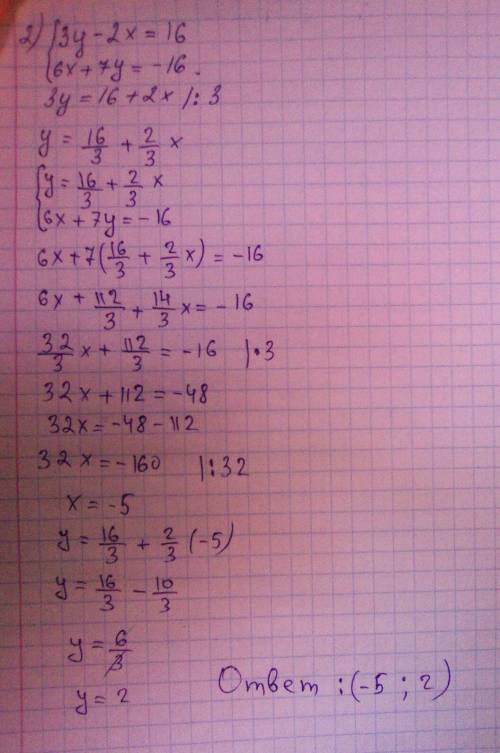 2) { 3y - 2x = 16
{ 6x + 7y = -16.
3y = 16 + 2x |: 3
y = 16/3 + 2/3 x
{ y = 16/3 + 2/3 x
{ 6x + 7y = -16
6x + 7(16/3 + 2/3 x) = -16
6x + 112/3 + 14/3 x = -16
32/3 x + 112/3 = -16 |·3
32x + 112 = -48
32x = -48 - 112
32x = -160 |:32
x = -5
y = 16/3 + 2/3 (-5)
y = 16/3 - 10/3
y = 6/3
y = 2
Ответ : (-5 ; 2)